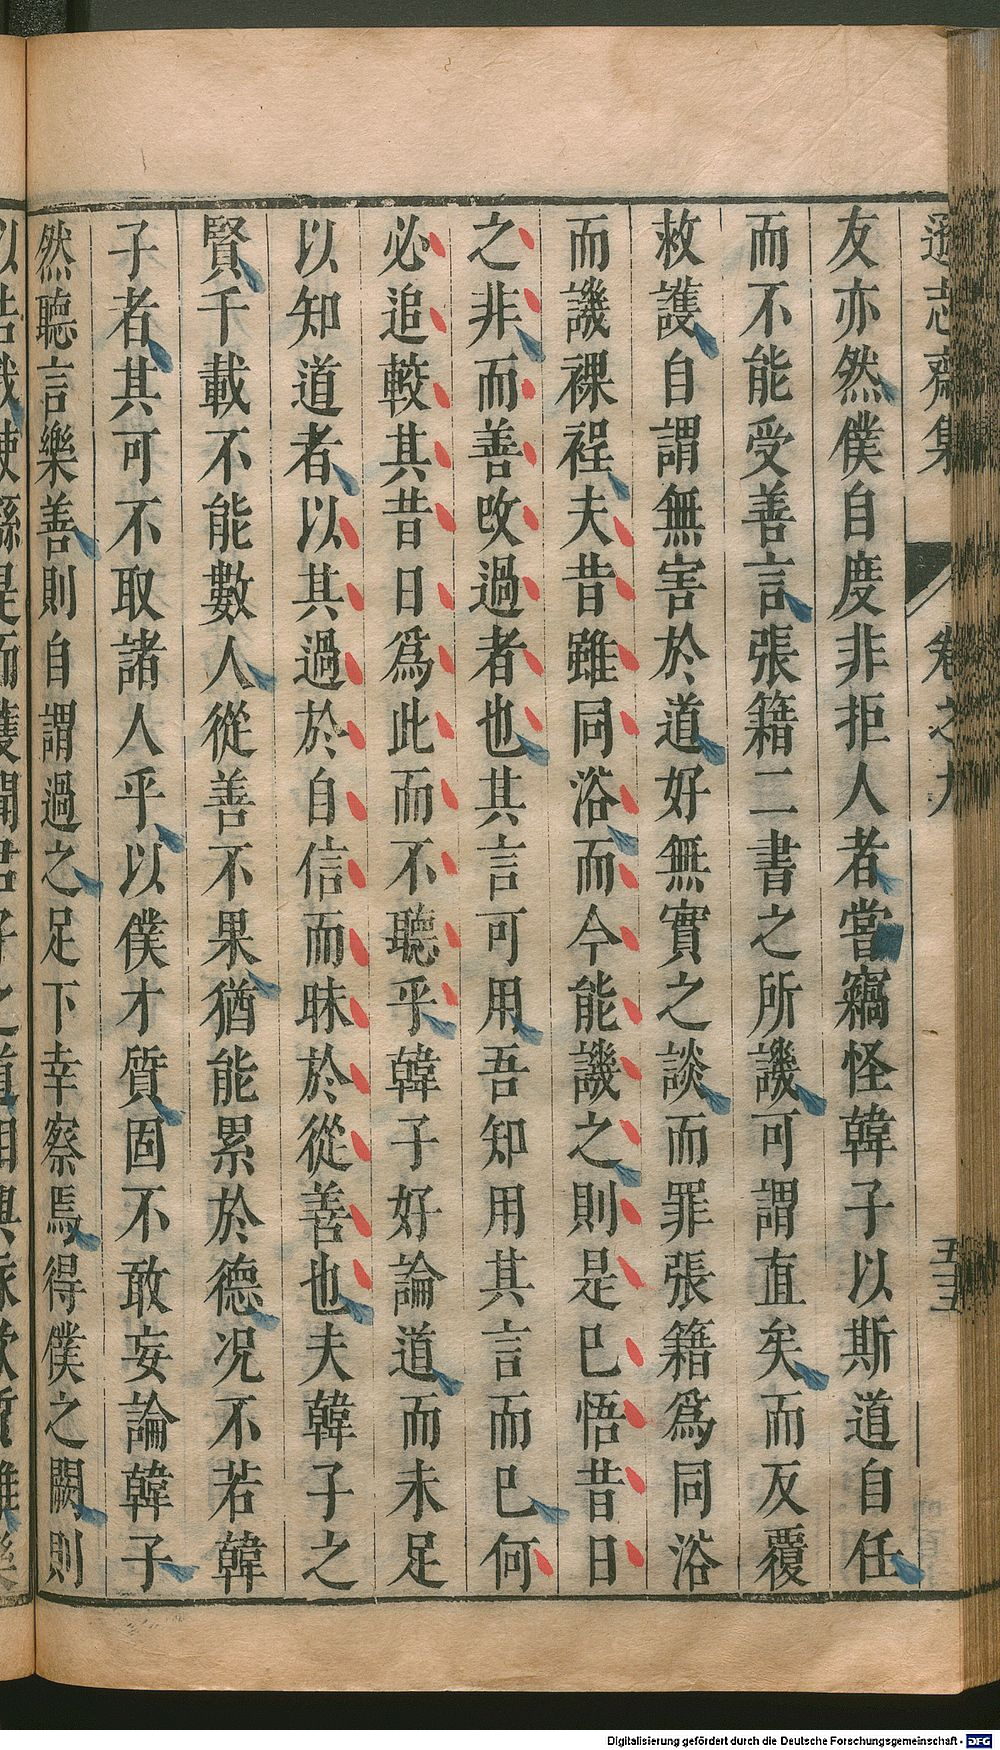 遜志齋集
卷之九
五三
友亦然僕自度非拒人者嘗竊怪韓子以斯道自任
而不能受善言張籍二書之所譏可謂直矣而反覆
救護自謂無害於道好無實之談而罪張籍爲同浴
而譏裸裎夫昔雖同浴而今能譏之則是已悟昔日
之非而善改過者也其言可用吾知用其言而已何
必追較其昔日爲此而不聽乎韓子好論道而未足
以知道者以其過於自信而昧於從善也夫韓子之
賢千載不能數人從善不果猶能累於德况不若韓
子者其可不取諸人乎以僕才質固不敢妄論韓子
然聽言樂善則自謂過之足下幸察焉得僕之闕則
Digitalisierung gefördert durch die Deutsche Forschungsgemeinschaft - DFG